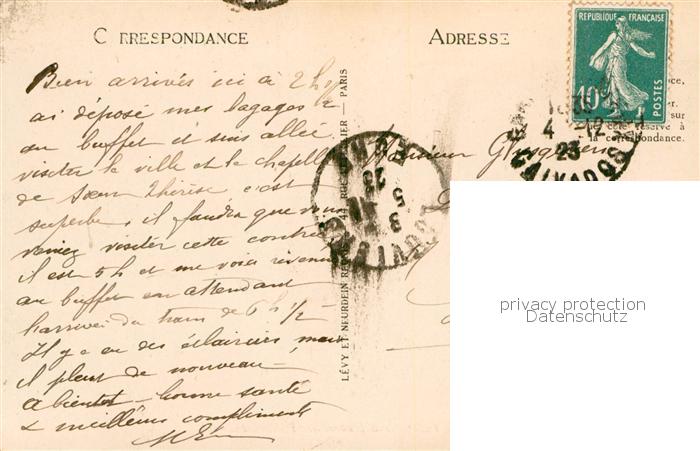 C RRESPONDANCE
ADRESSE
RÉPUBLIQUE FRANÇAISE
10c
POSTES
Bien arrivés ici à 2 h 1/2
ai déposé mes bagages
au buffet et suis allée
visiter la ville et la chapelle
de Sœur Thérèse c'est
superbe, il faudra que vous
veniez visiter cette contrée
il est 5 h et me voici revenue
au buffet en attendant
l'arrivée du train de 6 h 1/2
Il y a eu des éclaircies, mais
il pleut de nouveau
à bientôt bonne santé
& meilleurs compliments
Monsieur
LÉVY ET NEURDEIN RÉ 44, RUE IER — PARIS
ce,
ier.
sur
cté réservé à
correspondance.
4 12
23
CALVADOS
3 5
23
CALVADOS
privacy protection
Datenschutz